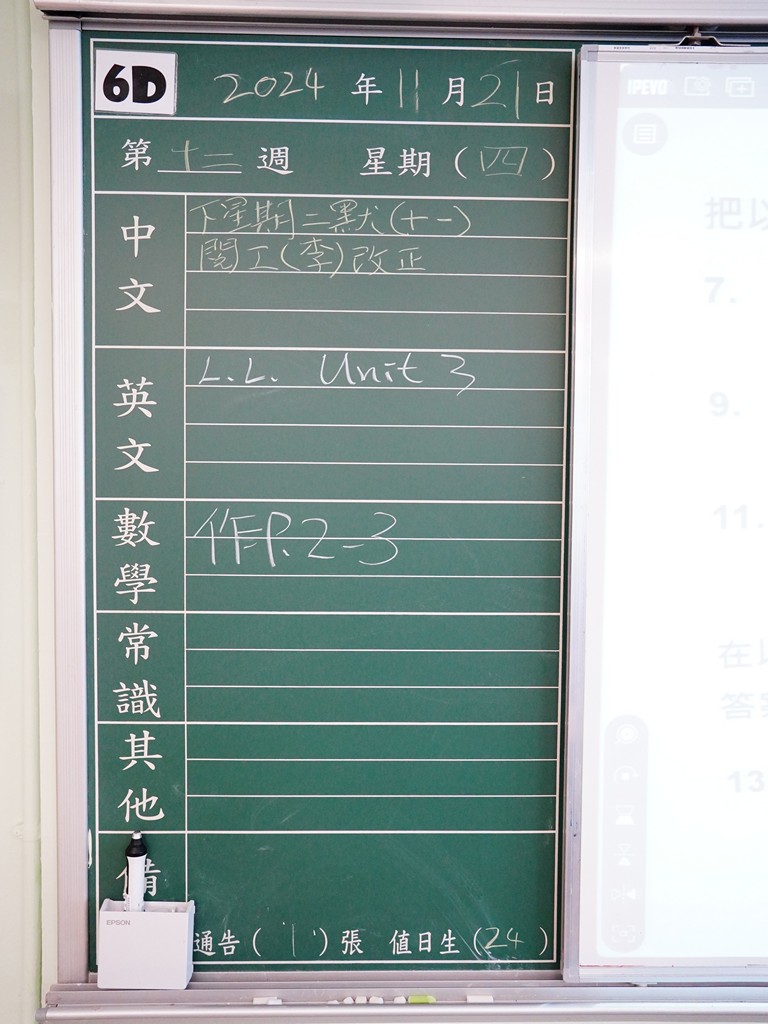 6D 2024 年 11 月 21 日
第 十二 週 星期 ( 四 )
中文
下星期二默(十一)
閱工(李)改正
英文
L.L. Unit 3
數學
作P.2-3
常識
其他
備
通告 ( 1 ) 張 值日生 ( 24 )
EPSON
IPEVO
把以
7.
9.
11.
在以
答案
13